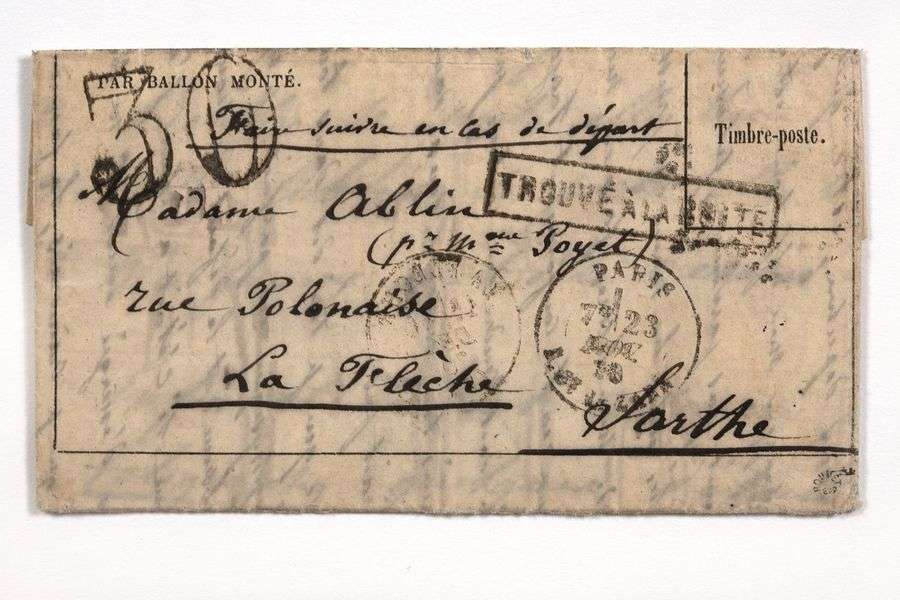 PAR BALLON MONTÉ.
30
Faire suivre en cas de départ
Timbre-poste.
TROUVÉ À LA BOITE
Madame Ablin
(pr Mme Poyet)
rue Polonaise
PARIS
7E 23
NOV.
70
La Flèche
Sarthe